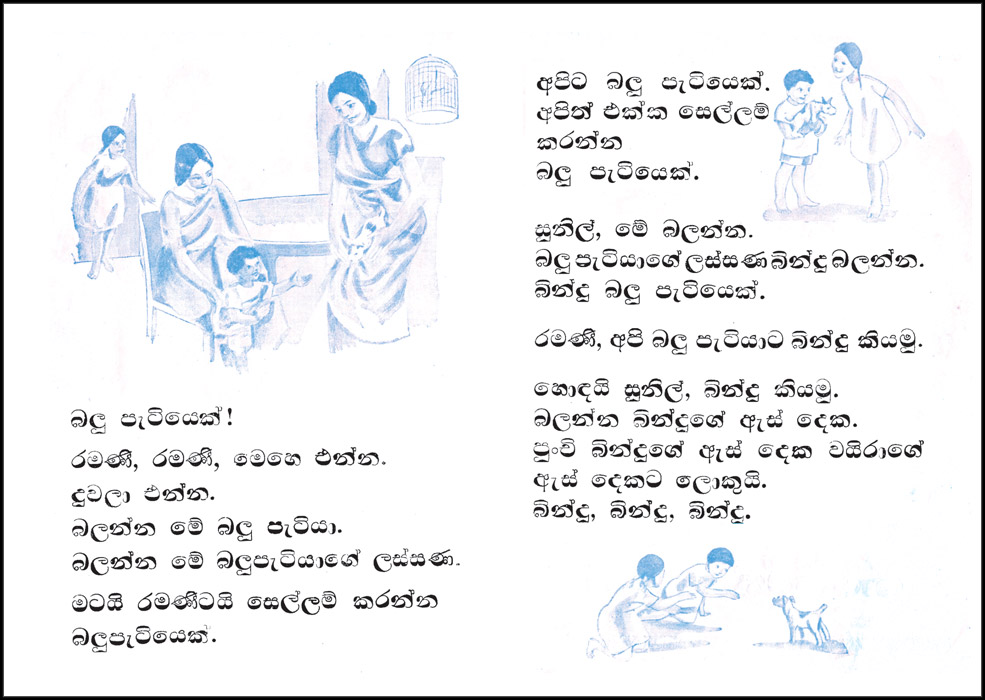 බලු පැටියෙක්!
රමණී, රමණී, මෙහෙ එන්න.
දුවලා එන්න.
බලන්න මේ බලු පැටියා.
බලන්න මේ බලුපැටියාගේ ලස්සණ.
මටයි රමණීටයි සෙල්ලම් කරන්න
බලුපැටියෙක්.
අපිට බලු පැටියෙක්.
අපිත් එක්ක සෙල්ලම්
කරන්න
බලු පැටියෙක්.
සුනිල්, මේ බලන්න.
බලු පැටියාගේ ලස්සණ බින්දු බලන්න.
බින්දු බලු පැටියෙක්.
රමණී, අපි බලු පැටියාට බින්දු කියමු.
හොඳයි සුනිල්, බින්දු කියමු.
බලන්න බින්දුගේ ඇස් දෙක.
පුංචි බින්දුගේ ඇස් දෙක වයිරාගේ
ඇස් දෙකට ලොකුයි.
බින්දු, බින්දු, බින්දු.